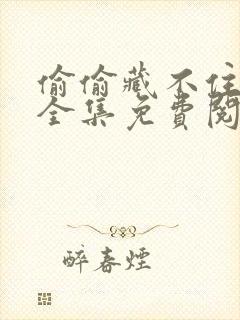 偷偷藏不住
全集免費閱
醉春煙